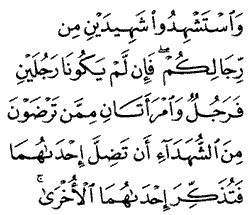 وَٱسْتَشْهِدُوا۟ شَهِيدَيْنِ مِن
رِّجَالِكُمْ ۖ فَإِن لَّمْ يَكُونَا رَجُلَيْنِ
فَرَجُلٌ وَٱمْرَأَتَانِ مِمَّن تَرْضَوْنَ
مِنَ ٱلشُّهَدَآءِ أَن تَضِلَّ إِحْدَىٰهُمَا
فَتُذَكِّرَ إِحْدَىٰهُمَا ٱلْأُخْرَىٰ ۚ